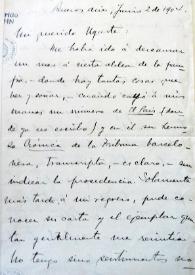 Buenos Aires, Junio 2 de 190
Mi querido Ugarte:
Me había ido á descansar
un mes á cierta aldea de la
donde hay tantas cosas que
ver y soñar, cuando cayó á mis
manos un número de El País (don-
de ya no escribo) y en él su hermosa
Crónica de la Tribuna barcelo-
nesa, transcripta, es claro, sin
indicar la procedencia. Solamente
más tarde, á mi regreso, pude co-
nocer su carta y el ejemplar que
tan gentilmente me remitía
No tengo sino sentimientos